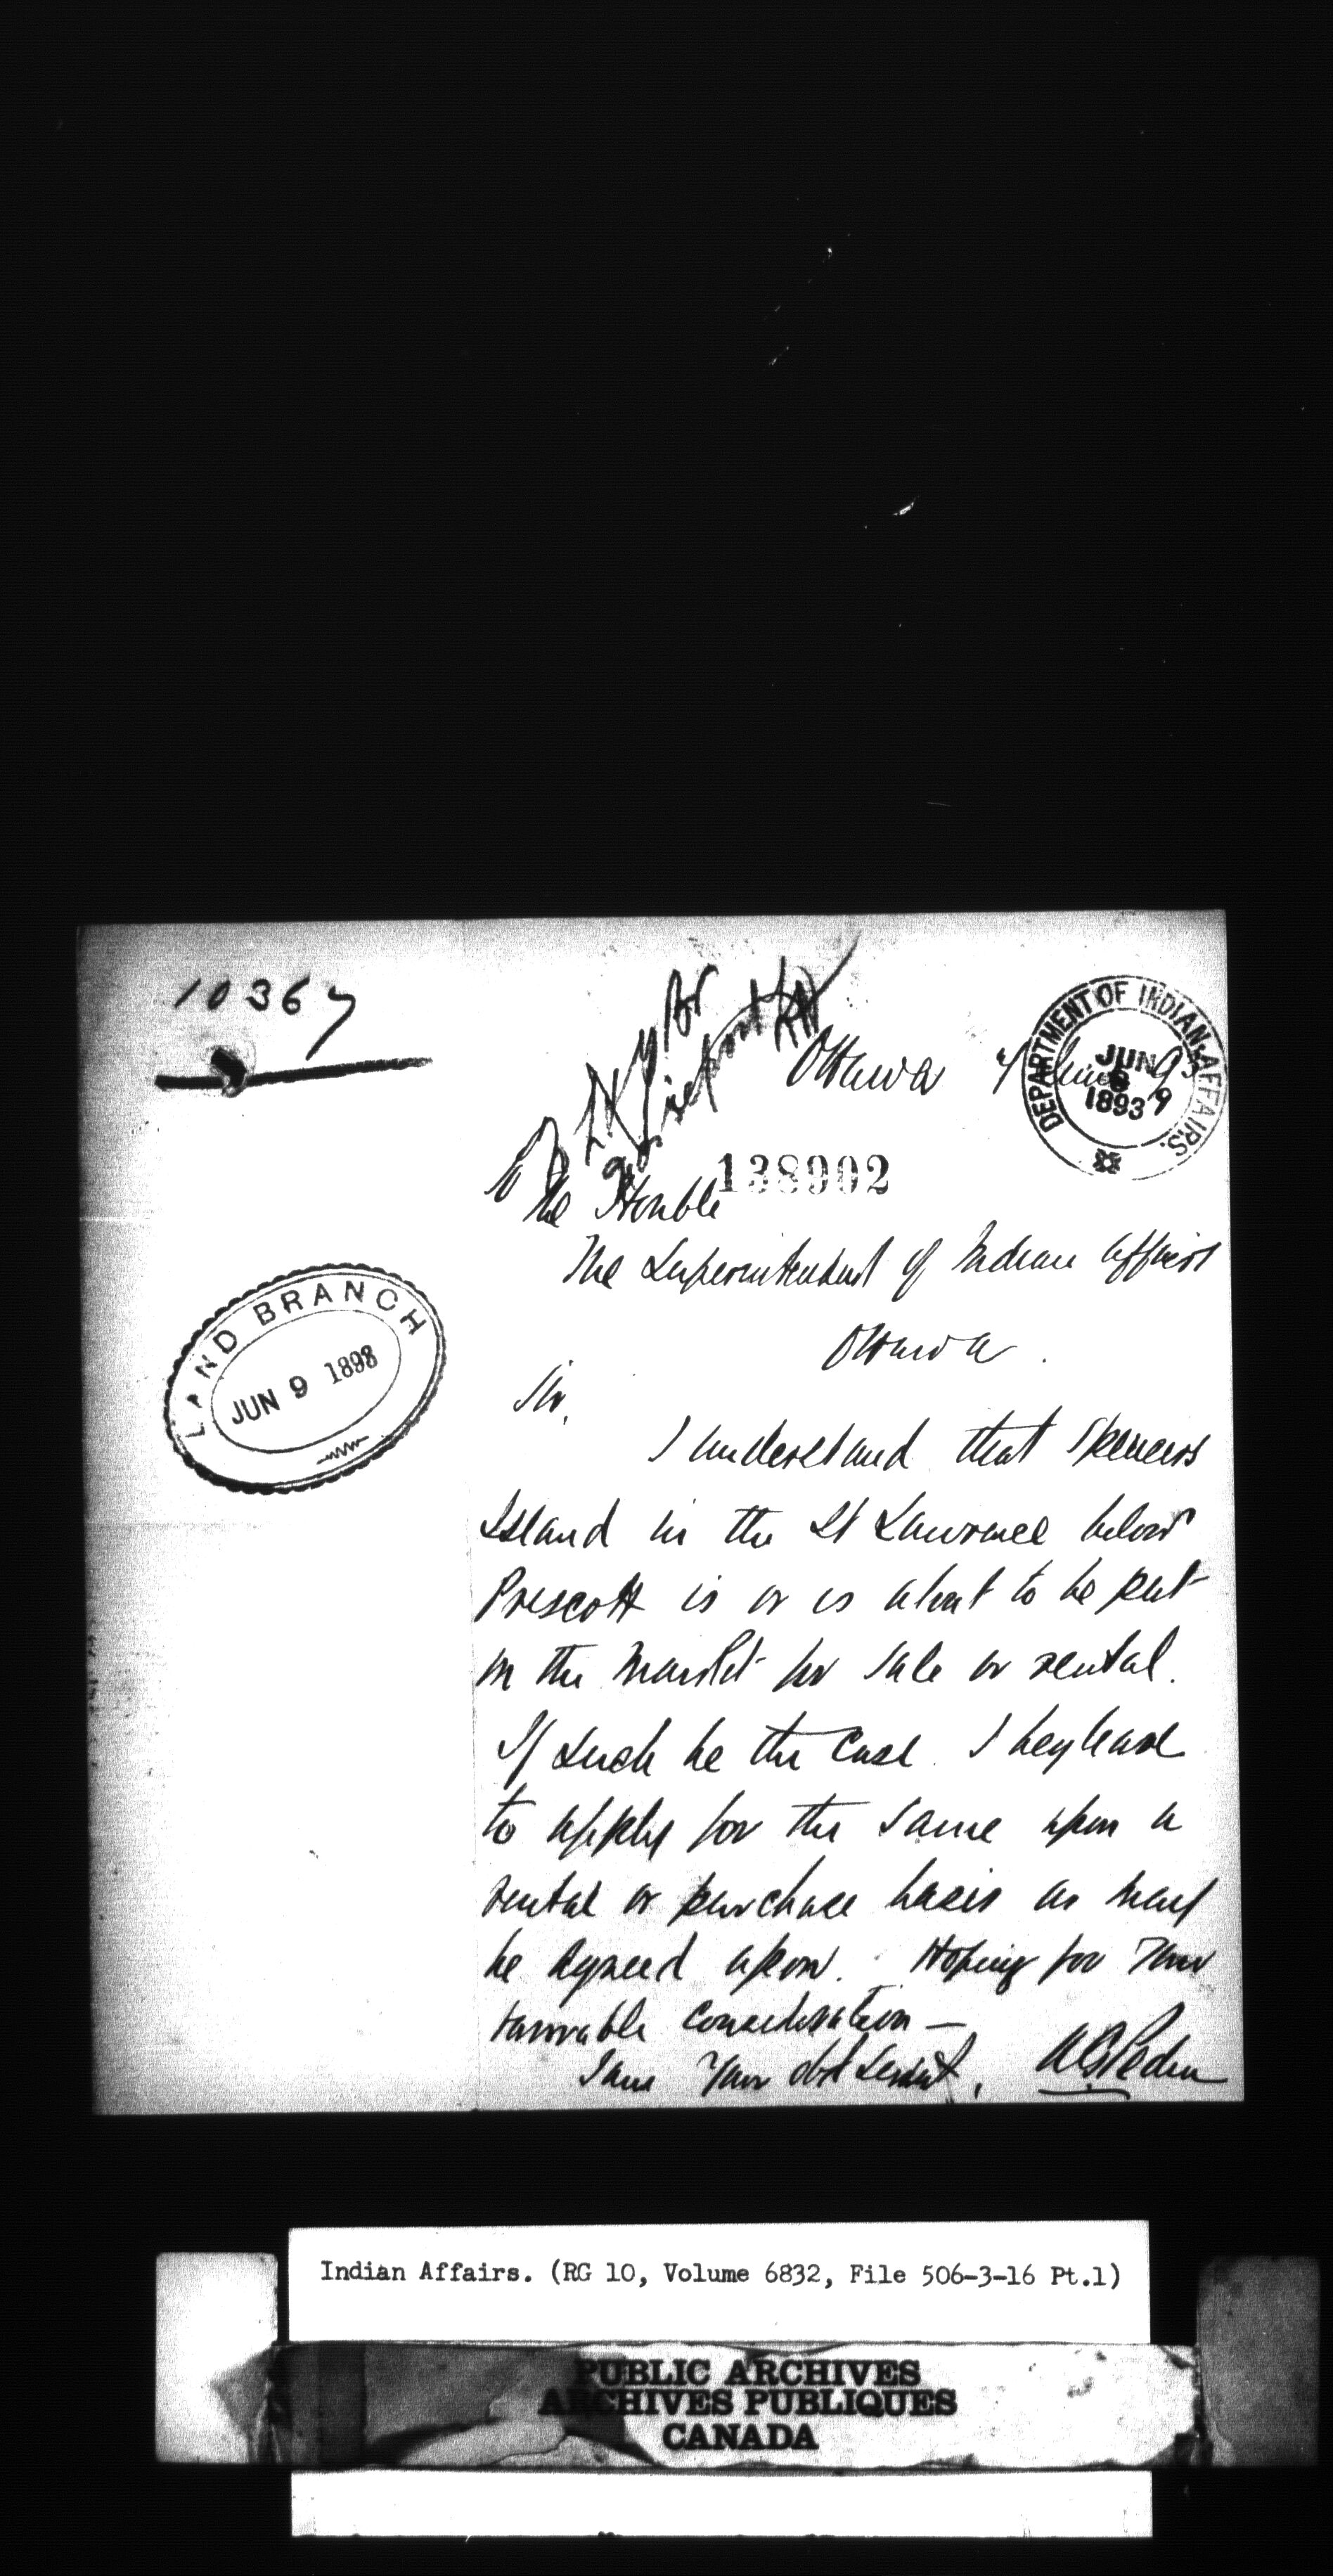 10367
Ottawa 7 June 93
DEPARTMENT OF INDIAN AFFAIRS.
JUN 9
1893
138902
The Honble
The Superintendent of Indian Affairs
Ottawa.
LAND BRANCH
JUN 9 1893
Sir,
I understand that Spencers
Island in the St Lawrence below
Prescott is or is about to be put
on the Market for sale or rental.
If such be the case I beg leave
to apply for the same upon a
rental or purchase basis as may
be agreed upon. Hoping for Your
favorable consideration —
I am Your obt Servt,
Indian Affairs. (RG 10, Volume 6832, File 506-3-16 Pt.1)
PUBLIC ARCHIVES
ARCHIVES PUBLIQUES
CANADA